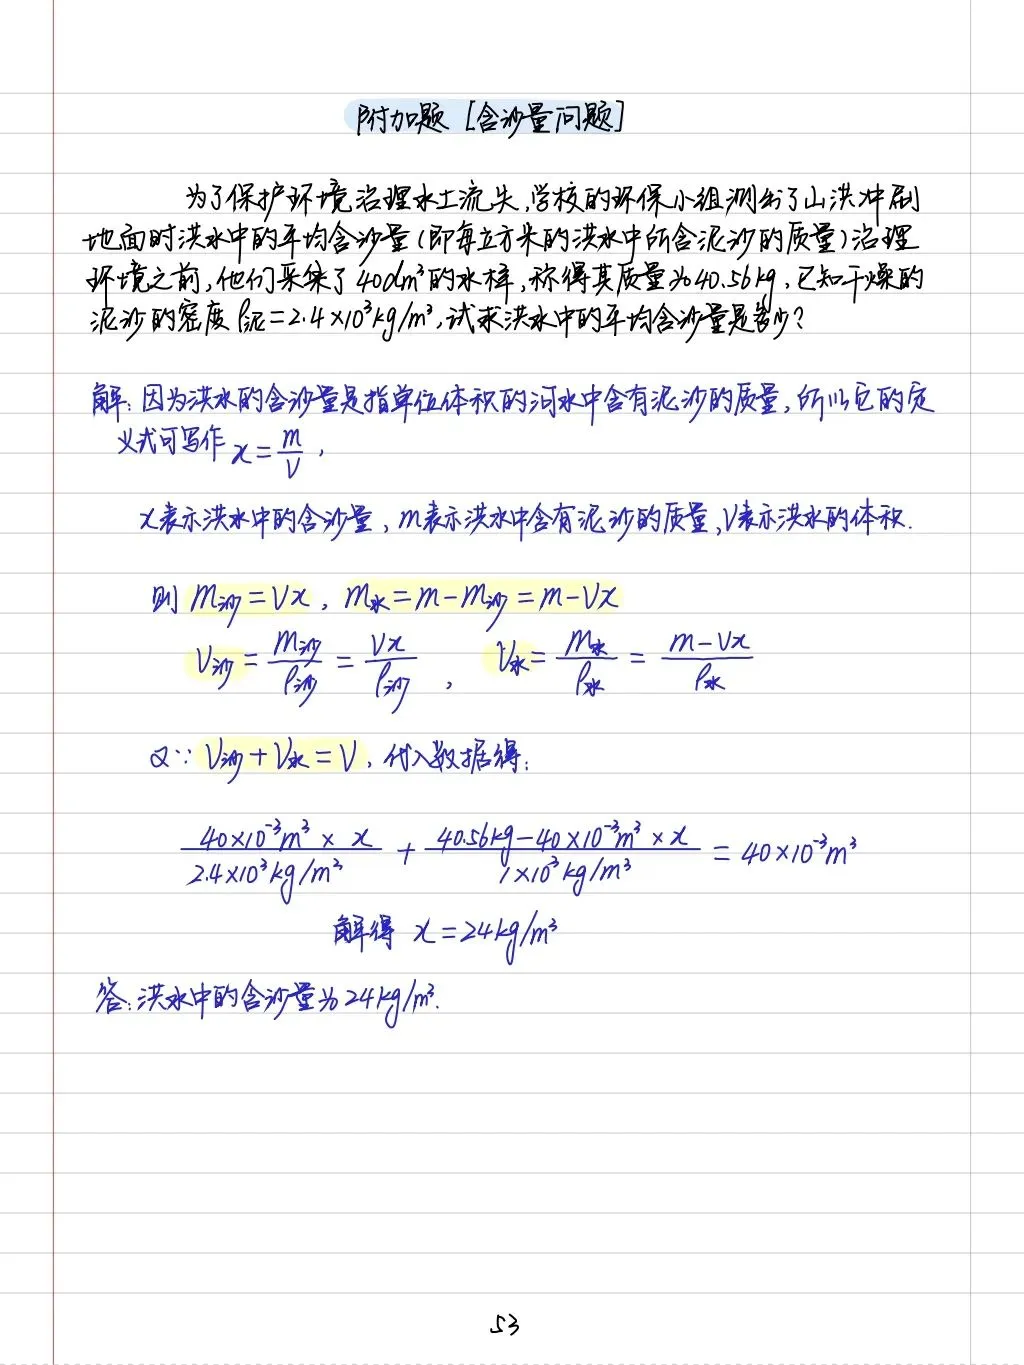 附加题 [含沙量问题]
为了保护环境,治理水土流失,学校的环保小组测出了山洪冲刷
地面时洪水中的平均含沙量(即每立方米的洪水中所含泥沙的质量)治理
环境之前,他们采集了40dm³的水样,称得其质量为40.56kg,已知干燥的
泥沙的密度ρ泥=2.4×10³kg/m³,试求洪水中的平均含沙量是多少?
解:因为洪水的含沙量是指单位体积的河水中含有泥沙的质量,所以它的定
义式可写作 x=m/V,
x表示洪水中的含沙量,m表示洪水中含有泥沙的质量,V表示洪水的体积.
则 m沙=Vx, m水=m-m沙=m-Vx
V沙=m沙/ρ沙=Vx/ρ沙, V水=m水/ρ水=m-Vx/ρ水
又∵V沙+V水=V,代入数据得:
40×10⁻³m³×x/2.4×10³kg/m³ + 40.56kg-40×10⁻³m³×x/1×10³kg/m³ = 40×10⁻³m³
解得 x=24kg/m³
答:洪水中的含沙量为24kg/m³.
53